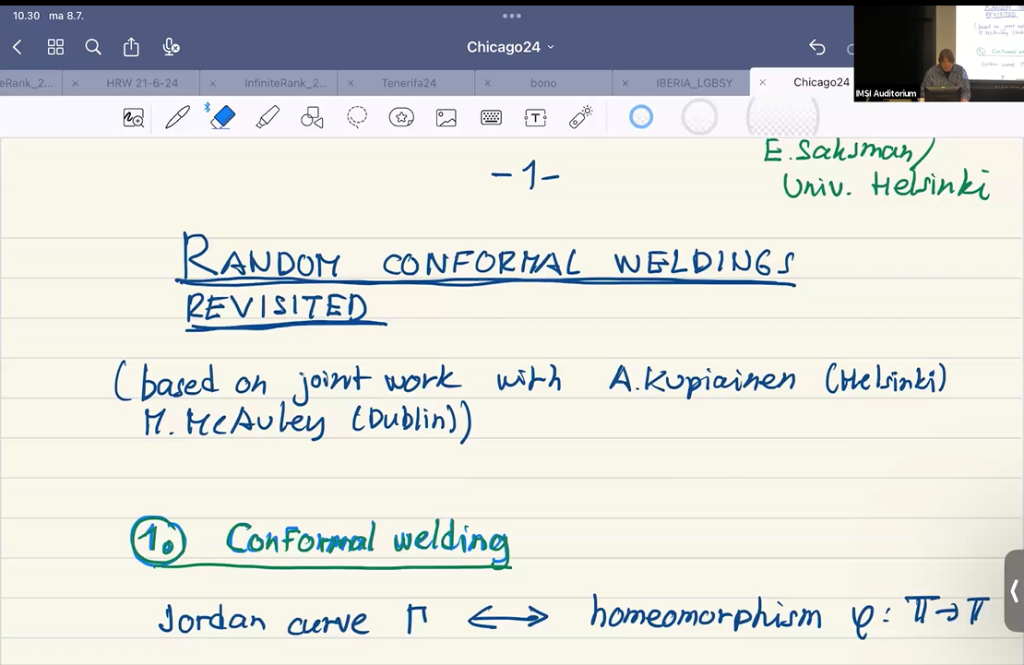 10.30 ma 8.7.
Chicago24
eRank_2...
HRW 21-6-24
InfiniteRank_2...
Tenerifa24
bono
IBERIA_LGBSY
Chicago24
IMSI Auditorium
-1-
E. Saksman/
Univ. Helsinki
RANDOM CONFORMAL WELDINGS
REVISITED
(based on joint work with A. Kupiainen (Helsinki)
M. McAuley (Dublin))
1. Conformal welding
Jordan curve Γ ↔ homeomorphism φ: 𝕋→𝕋